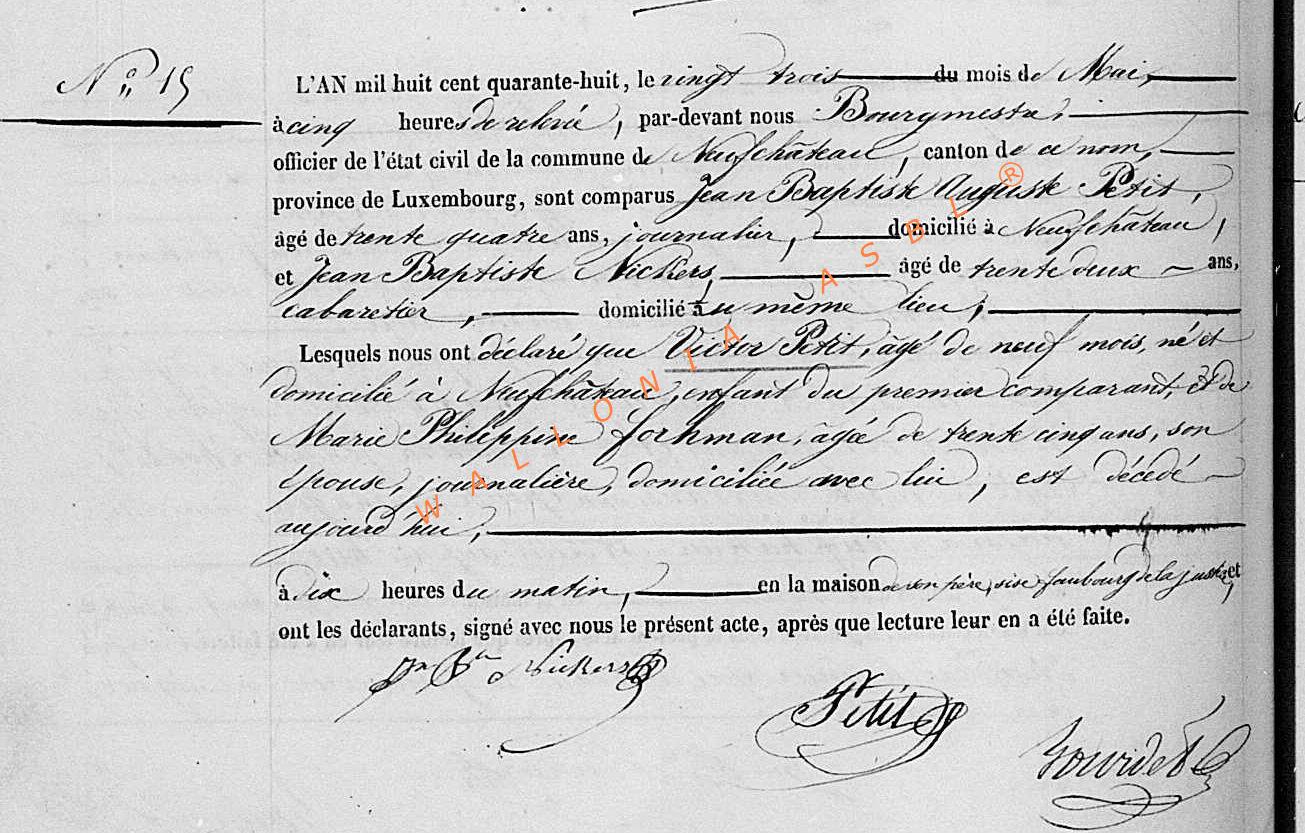 N° 15
L'AN mil huit cent quarante-huit, le vingt trois du mois de Mai,
à cinq heures de relevée, par-devant nous Bourgmestre,
officier de l'état civil de la commune de Neufchâteau, canton de ce nom,
province de Luxembourg, sont comparus Jean Baptiste Auguste Petit,
âgé de trente quatre ans, journalier, domicilié à Neufchâteau,
et Jean Baptiste Nickers, âgé de trente deux ans,
cabaretier, domicilié au même lieu,
Lesquels nous ont déclaré que Victor Petit, âgé de neuf mois, né et
domicilié à Neufchâteau, enfant du premier comparant, et de
Marie Philippine forhman, agée de trente cinq ans, son
épouse, journalière, domiciliée avec lui, est décédé
aujourd'hui,
à dix heures du matin, en la maison de son père, sise faubourg de la justice, et
ont les déclarants, signé avec nous le présent acte, après que lecture leur en a été faite.
Jn Bte Nickers
Petit
WALLONIA ASBL ®